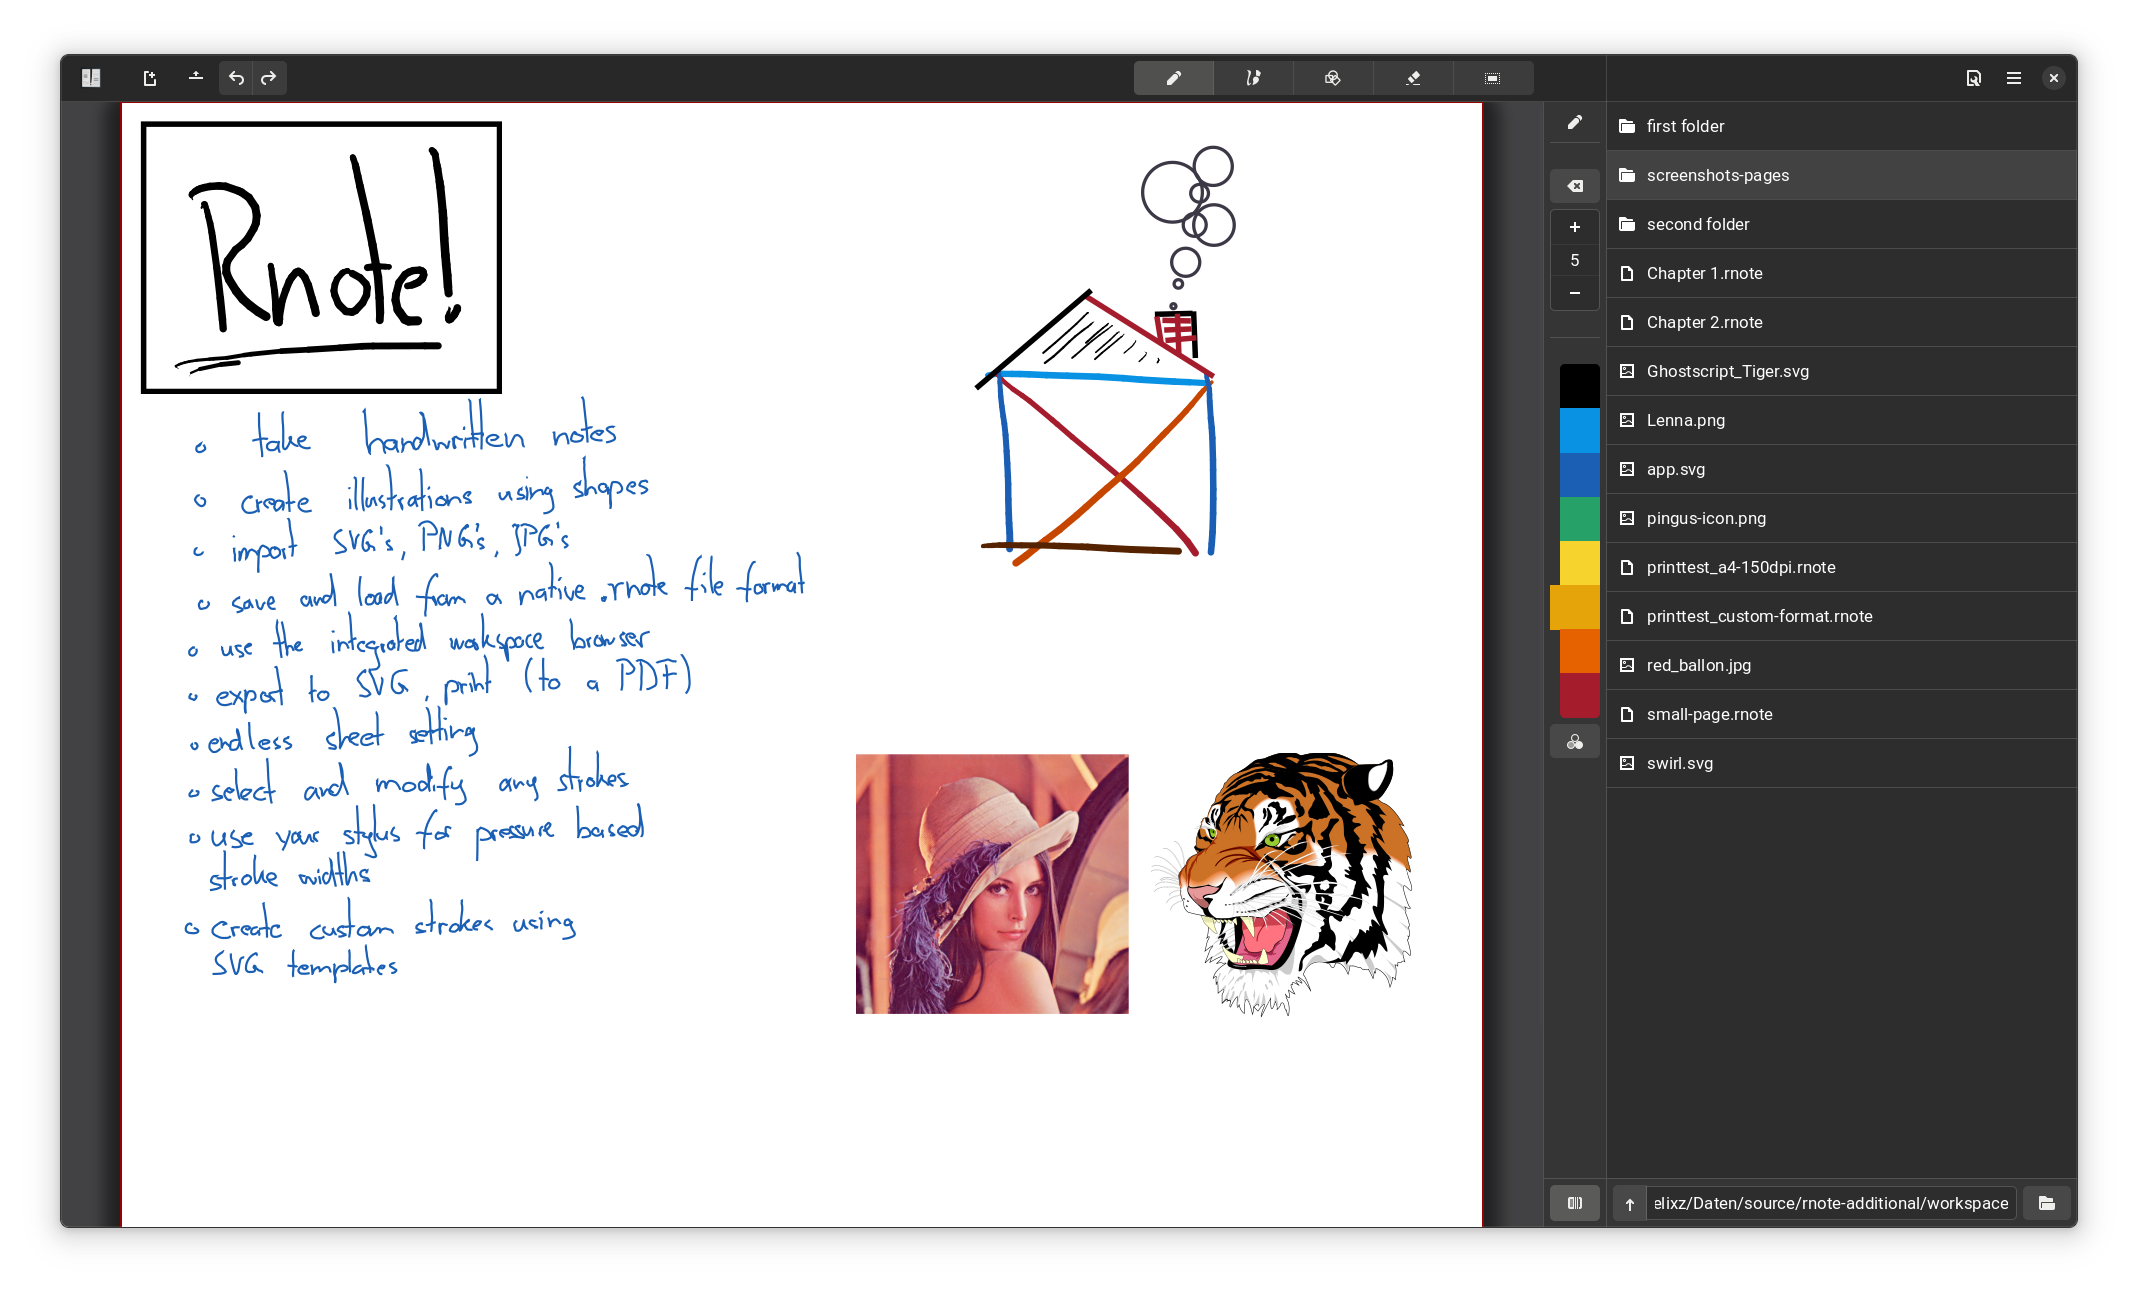 Rnote!
o take handwritten notes
o create illustrations using shapes
o import SVG's, PNG's, JPG's
o save and load from a native .rnote file format
o use the integrated workspace browser
o export to SVG, print (to a PDF)
o endless sheet setting
o select and modify any strokes
o use your stylus for pressure based
stroke widths
o Create custom strokes using
SVG templates
+
5
−
first folder
screenshots-pages
second folder
Chapter 1.rnote
Chapter 2.rnote
Ghostscript_Tiger.svg
Lenna.png
app.svg
pingus-icon.png
printtest_a4-150dpi.rnote
printtest_custom-format.rnote
red_ballon.jpg
small-page.rnote
swirl.svg
elixz/Daten/source/rnote-additional/workspace